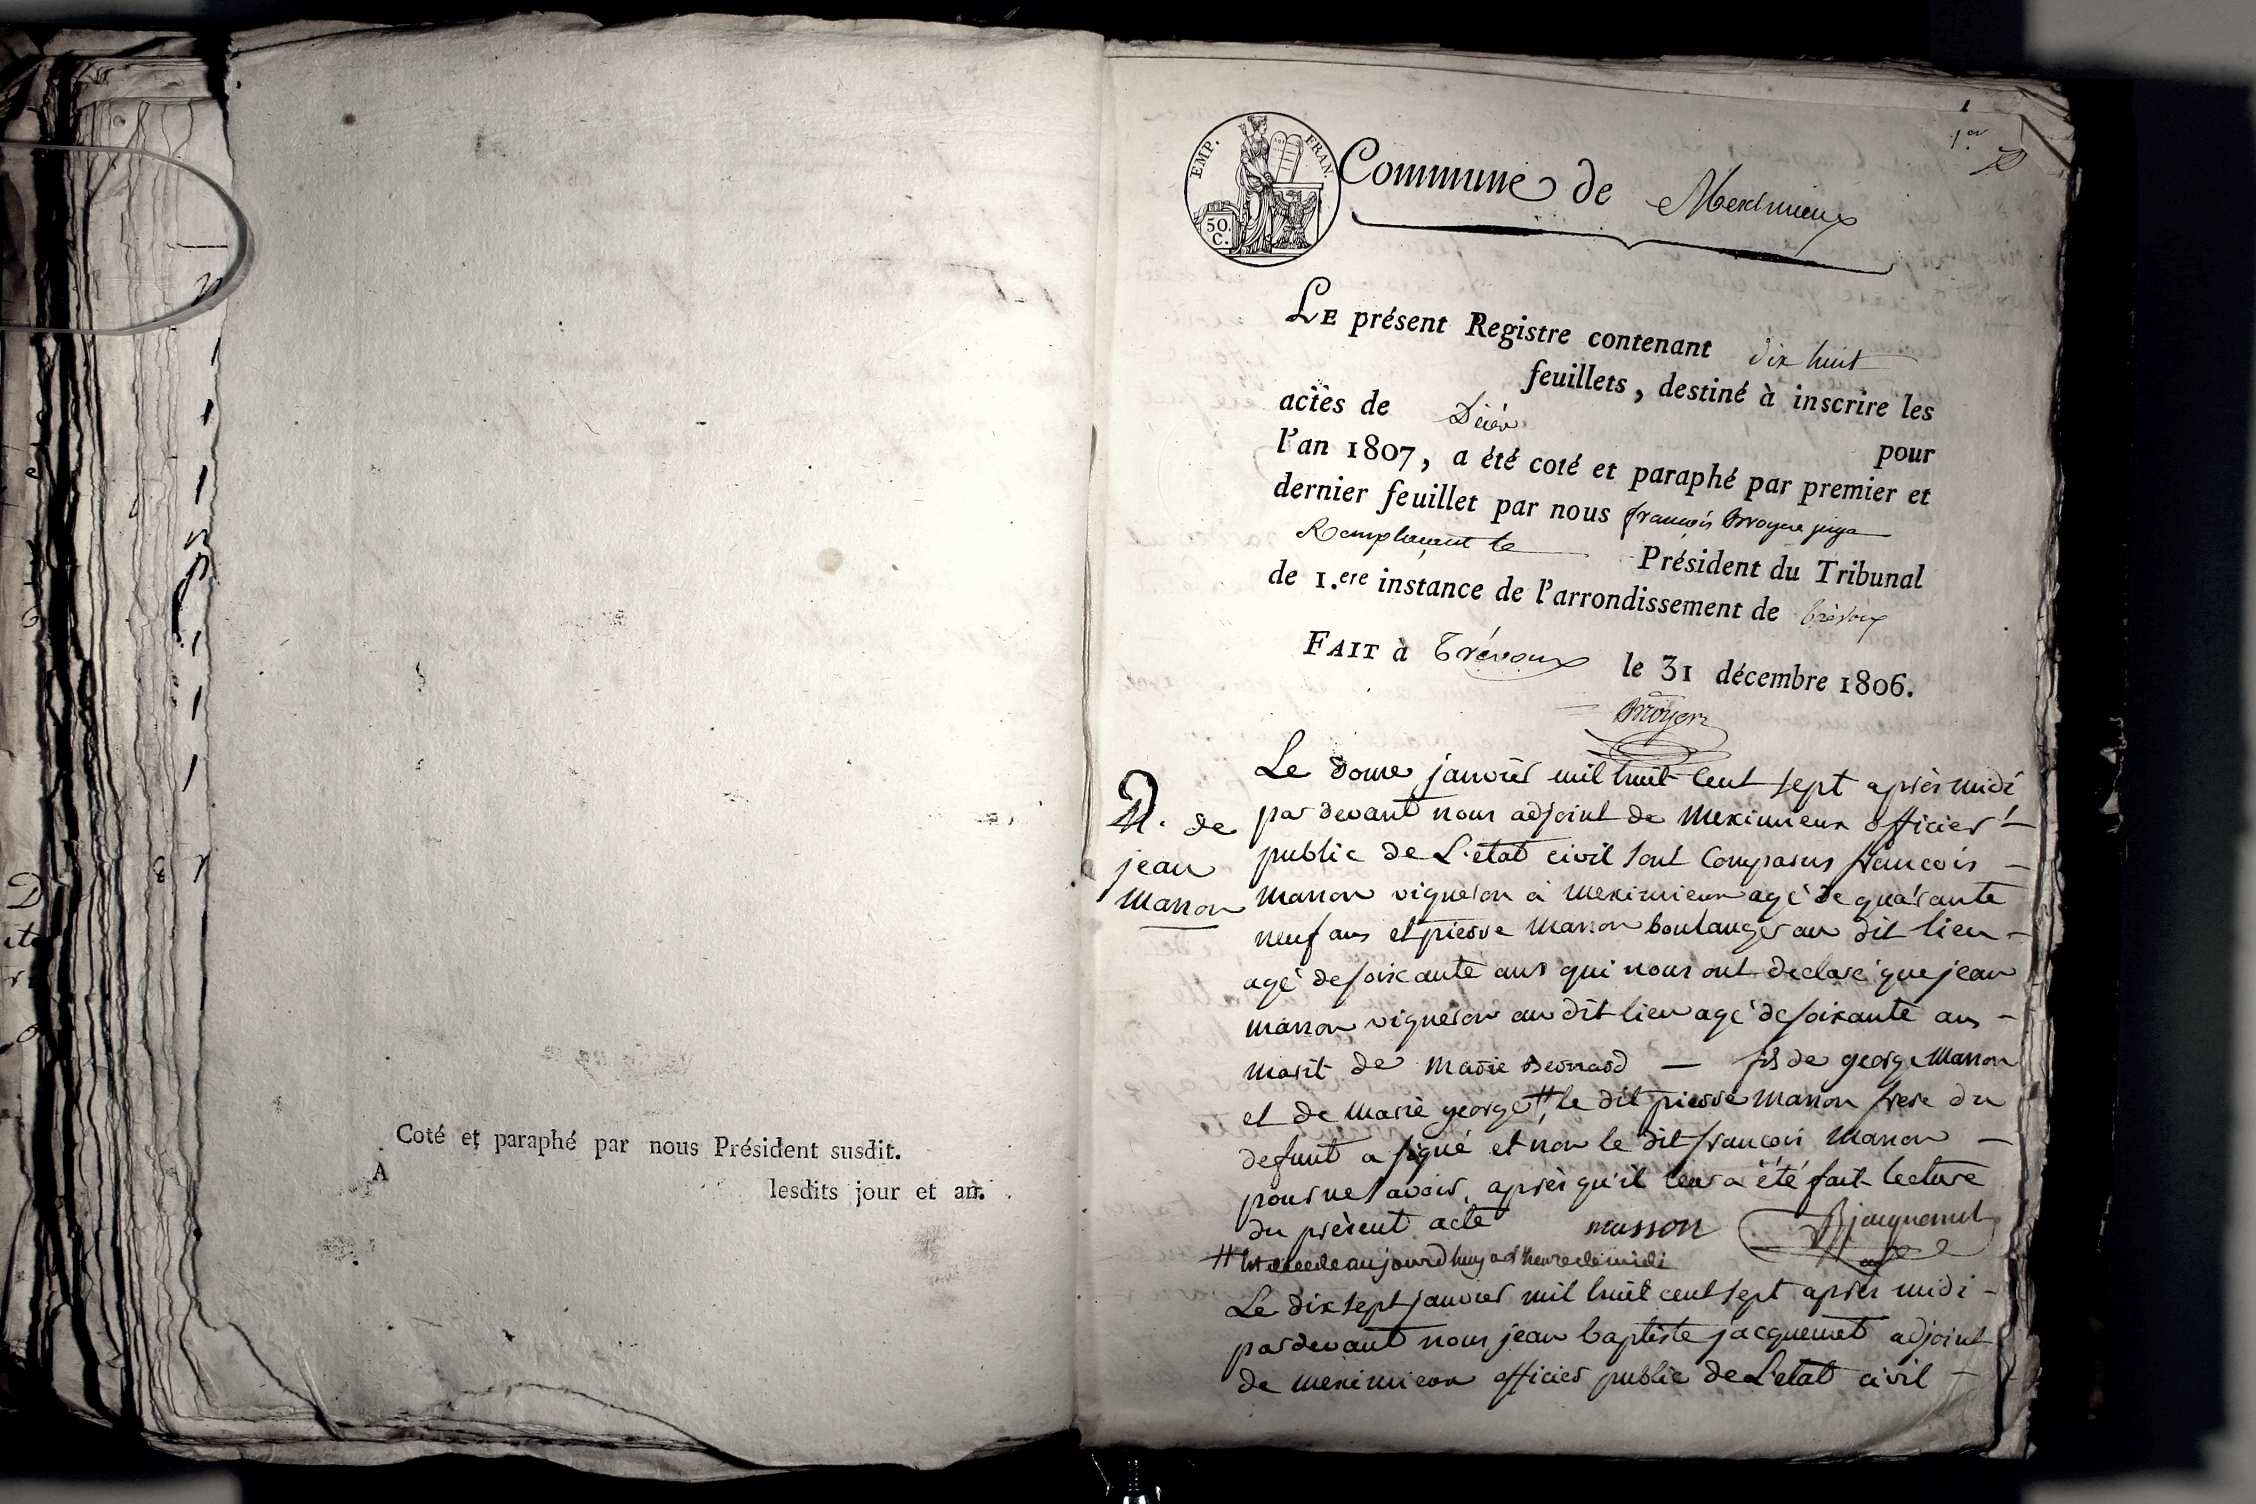 Coté et paraphé par nous Président susdit.
A
lesdits jour et an.
1
1er
EMP. FRAN.
50.
C.
Commune de Meximieux
LE présent Registre contenant dix huit
feuillets, destiné à inscrire les
actes de Décès pour
l'an 1807, a été coté et paraphé par premier et
dernier feuillet par nous françois Brroyer juge
Remplaçant le Président du Tribunal
de 1.ere instance de l'arrondissement de trévoux
FAIT à Trévoux le 31 décembre 1806.
D. de
jean
Masson
Le douze janvier mil huit cent sept après midi
par devant nous adjoint de Meximieux officier
public de L'état civil sont Comparus françois
Masson vigneron à Meximieux agé de quarante
neuf ans et pierre Masson boulanger au dit lieu
agé de soixante ans qui nous ont declaré que jean
Masson vigneron au dit lieu agé de soixante ans
marit de Marie Bernard — fils de george Masson
et de Marie george # le dit pierre Masson frere du
defunt a signé et non le dit françois Masson
pour ne savoir, après qu'il leur a été fait lecture
du présent acte masson Bjacquemet
# est decede aujourd huy a heure de midi
Le dix sept janvier mil huit cent sept après midi
par devant nous jean baptiste jacquemet adjoint
de meximieux officier public de L'etat civil